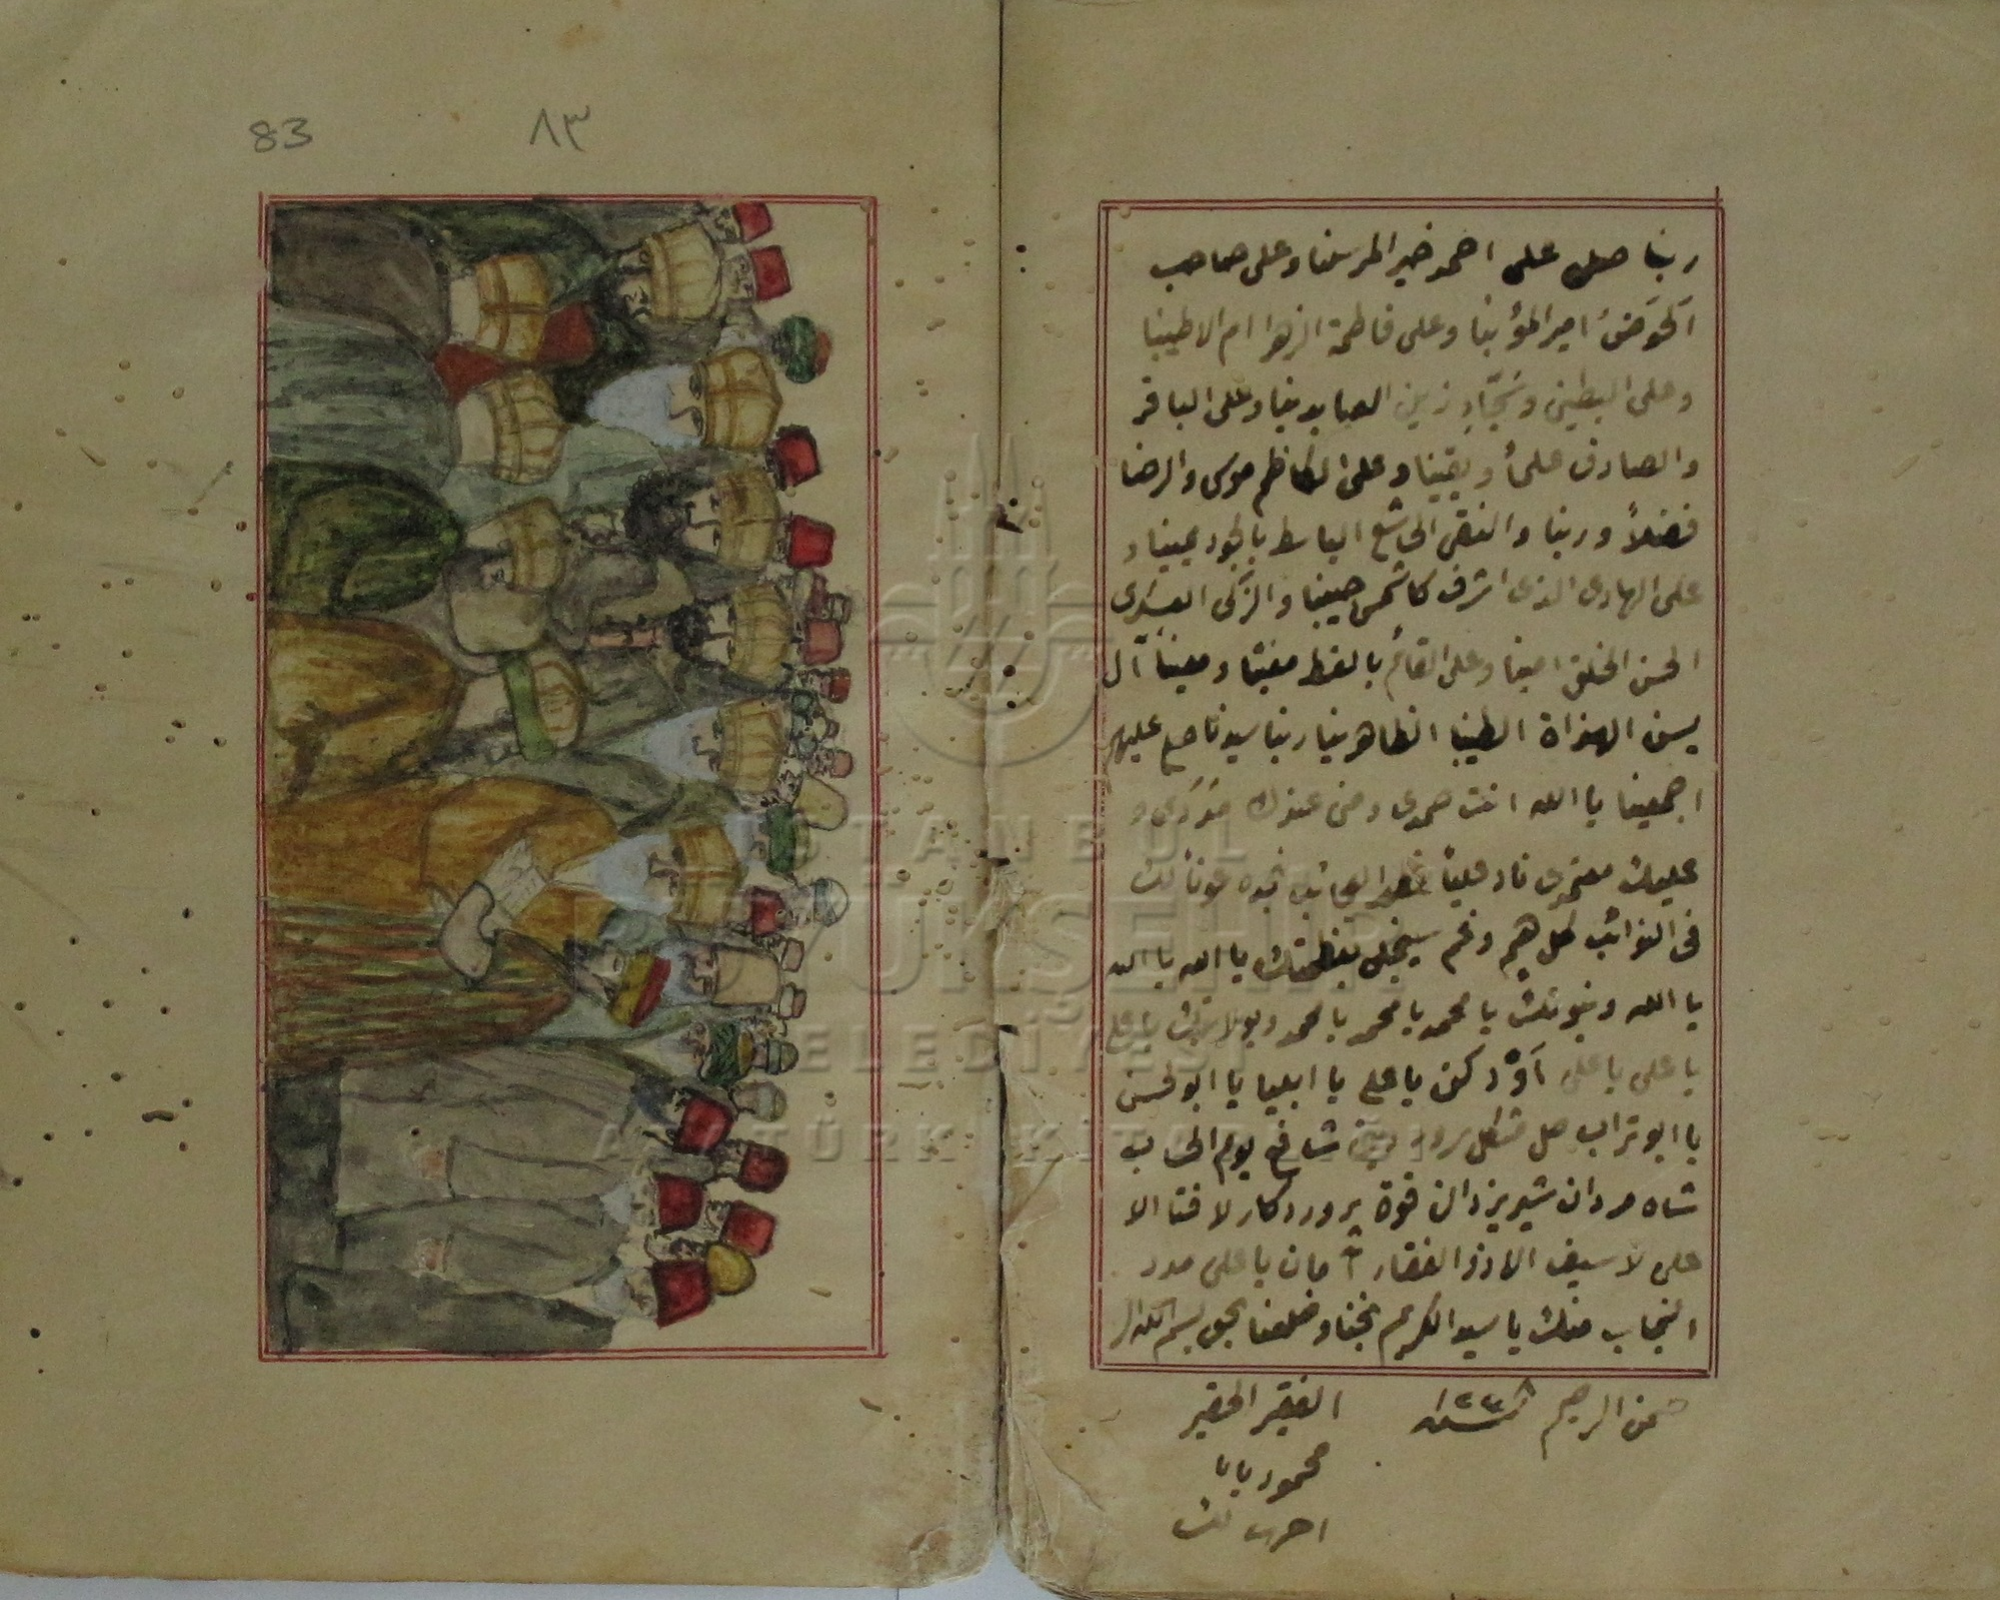 ربنا صل على احمد خير المرسلنا وعلى صاحب
الحَوَضَ امير المؤبنا وعلى فاطمة الزهرا ام الاطيبنا
وعلى البطين وسَجّادِ زين العابدينا وعلى الباقر
والصادق علماً ويقينا وعلى الكاظم موسى والرضا
فضلاً ودينا والنقى الخاشع الباسط بالجود يمينا و
على الهادى الذى اشرف كالشمس جبينا والزكى العسكرى
الحسن الخلق امينا وعلى القائم بالقسط مغيثا ومعيناً آل
يسن الهداة الطيبنا الظاهرينا ربنا سيدنا صل عليهم
اجمعينا يا الله انت صمدى ومن عندك مددى و
عليك معتمدى ناد علياً مظهر العجائب تجده عوناً لك
فى النوائب كل هم وغم سينجلى بعظمتك يا الله يا الله
يا الله وبنبوتك يا محمد يا محمد يا محمد وبولايتك يا على
يا على يا على ادركن يا على يا ايليا يا ابو الحسن
يا ابو تراب حل مشكل شافع يوم الحساب
شاه مردان شير يزدان قوة پروردكار لا فتا الا
على لا سيف الا ذو الفقار امان يا على مدد
النجاب منك يا سيد الكريم نجنا وخلصنا بحق بسم الله الر
حمن الرحيم سنه ١٢٣
الفقير الحقير
محمود بابا
83
٨٣
İSTANBUL
BÜYÜKŞEHİR
BELEDİYESİ
ATATÜRK KİTAPLIĞI